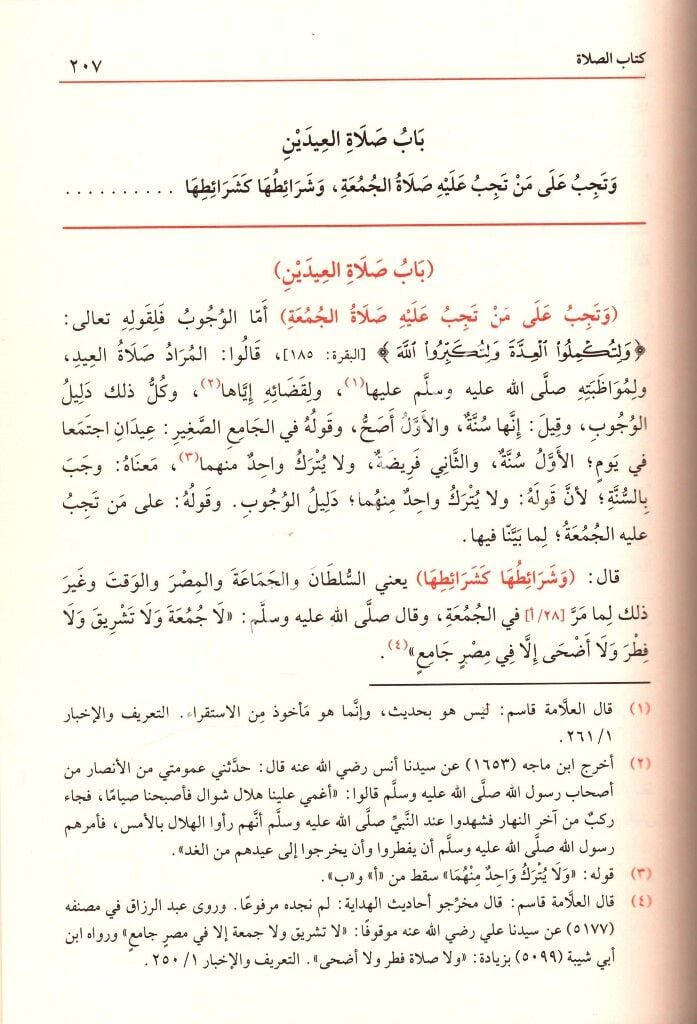 كتاب الصلاة ٢٠٧
بَابُ صَلَاةِ العِيدَيْنِ
وَتَجِبُ عَلَى مَنْ تَجِبُ عَلَيْهِ صَلَاةُ الجُمُعَةِ، وَشَرَائِطُهَا كَشَرَائِطِهَا ..........
(بَابُ صَلَاةِ العِيدَيْنِ)
(وَتَجِبُ عَلَى مَنْ تَجِبُ عَلَيْهِ صَلَاةُ الجُمُعَةِ) أمّا الوُجُوبُ فَلِقَولِهِ تعالى:
﴿وَلِتُكْمِلُوا۟ ٱلْعِدَّةَ وَلِتُكَبِّرُوا۟ ٱللَّهَ﴾ [البقرة: ١٨٥]، قَالُوا: المُرَادُ صَلَاةُ العِيدِ،
ولِمُوَاظَبَتِهِ صلَّى الله عليه وسلَّم عليها(١)، ولِقَضَائِهِ إيَّاها(٢)، وكُلُّ ذلك دَلِيلُ
الوُجُوبِ، وقِيلَ: إنَّها سُنَّةٌ، والأوَّلُ أصَحُّ، وقولُهُ في الجَامِعِ الصَّغِيرِ: عِيدَانِ اجتَمَعا
في يَومٍ؛ الأوَّلُ سُنَّةٌ، والثَّاني فَرِيضَةٌ، ولا يُتْرَكُ واحِدٌ منهما(٣)، مَعنَاهُ: وجَبَ
بِالسُّنَّةِ؛ لأنَّ قَولَهُ: ولا يُتْرَكُ واحِدٌ مِنهُما؛ دَلِيلُ الوُجُوبِ. وقَولُهُ: على مَن تَجِبُ
عليه الجُمُعَةُ؛ لِما بَيَّنَّا فيها.
قال: (وَشَرَائِطُهَا كَشَرَائِطِهَا) يعني السُّلطَانَ والجَمَاعَةَ والمِصْرَ والوَقتَ وغَيرَ
ذلك لِما مَرَّ [٢٨/أ] في الجُمُعَةِ، وقال صلَّى الله عليه وسلَّم: «لَا جُمُعَةَ وَلَا تَشْرِيقَ وَلَا
فِطْرَ وَلَا أَضْحَى إلَّا فِي مِصْرٍ جَامِعٍ»(٤).
(١) قال العلَّامة قاسم: ليس هو بحديث، وإنَّما هو مَأخوذ مِن الاستقراء. التعريف والإخبار
٢٦١/١.
(٢) أخرج ابن ماجه (١٦٥٣) عن سيدنا أنس رضي الله عنه قال: حدَّثني عمومتي من الأنصار من
أصحاب رسول الله صلَّى الله عليه وسلَّم قالوا: «أغمي علينا هلال شوال فأصبحنا صيامًا، فجاء
ركبٌ من آخر النهار فشهدوا عند النبيِّ صلَّى الله عليه وسلَّم أنَّهم رأوا الهلال بالأمس، فأمرهم
رسول الله صلَّى الله عليه وسلَّم أن يفطروا وأن يخرجوا إلى عيدهم من الغد».
(٣) قوله: «وَلَا يُتْرَكُ وَاحِدٌ مِنْهُمَا» سقط من «أ» و«ب».
(٤) قال العلَّامة قاسم: قال مخرِّجو أحاديث الهداية: لم نجده مرفوعًا. وروى عبد الرزاق في مصنفه
(٥١٧٧) عن سيدنا علي رضي الله عنه موقوفًا: «لا تشريق ولا جمعة إلا في مصرٍ جامعٍ» ورواه ابن
أبي شيبة (٥٠٩٩) بزيادة: «ولا صلاة فطر ولا أضحى». التعريف والإخبار ٢٥٠/١.